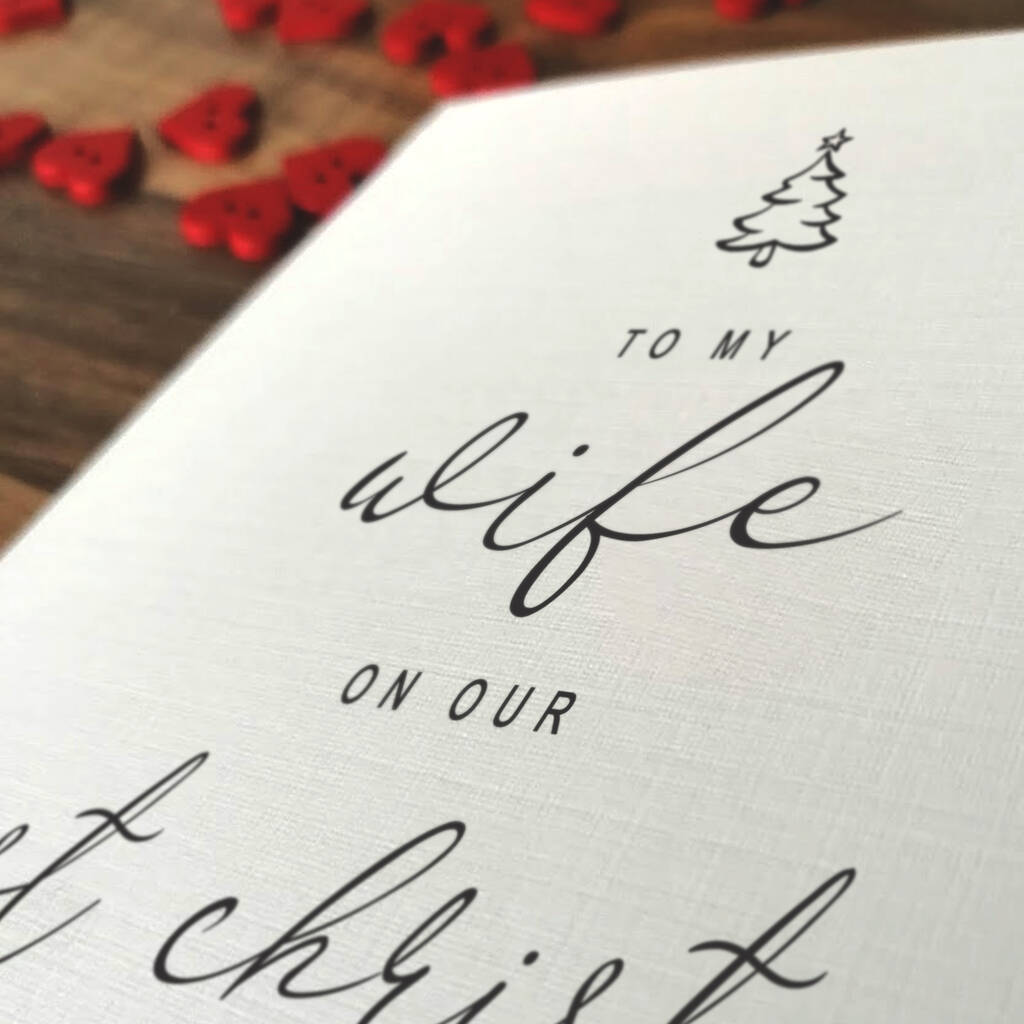 TO MY
wife
ON OUR
st christ